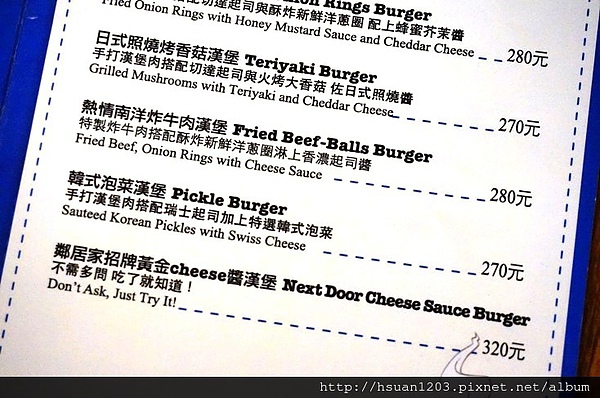 Onion Rings Burger
搭配切達起司與酥炸新鮮洋蔥圈 配上蜂蜜芥茉醬
Fried Onion Rings with Honey Mustard Sauce and Cheddar Cheese 280元
日式照燒烤香菇漢堡 Teriyaki Burger
手打漢堡肉搭配切達起司與火烤大香菇 佐日式照燒醬
Grilled Mushrooms with Teriyaki and Cheddar Cheese 270元
熱情南洋炸牛肉漢堡 Fried Beef-Balls Burger
特製炸牛肉搭配酥炸新鮮洋蔥圈淋上香濃起司醬
Fried Beef, Onion Rings with Cheese Sauce 280元
韓式泡菜漢堡 Pickle Burger
手打漢堡肉搭配瑞士起司加上特選韓式泡菜
Sauteed Korean Pickles with Swiss Cheese 270元
鄰居家招牌黃金cheese醬漢堡 Next Door Cheese Sauce Burger
不需多問 吃了就知道！
Don't Ask, Just Try It! 320元
http://hsuan1203.pixnet.net/album